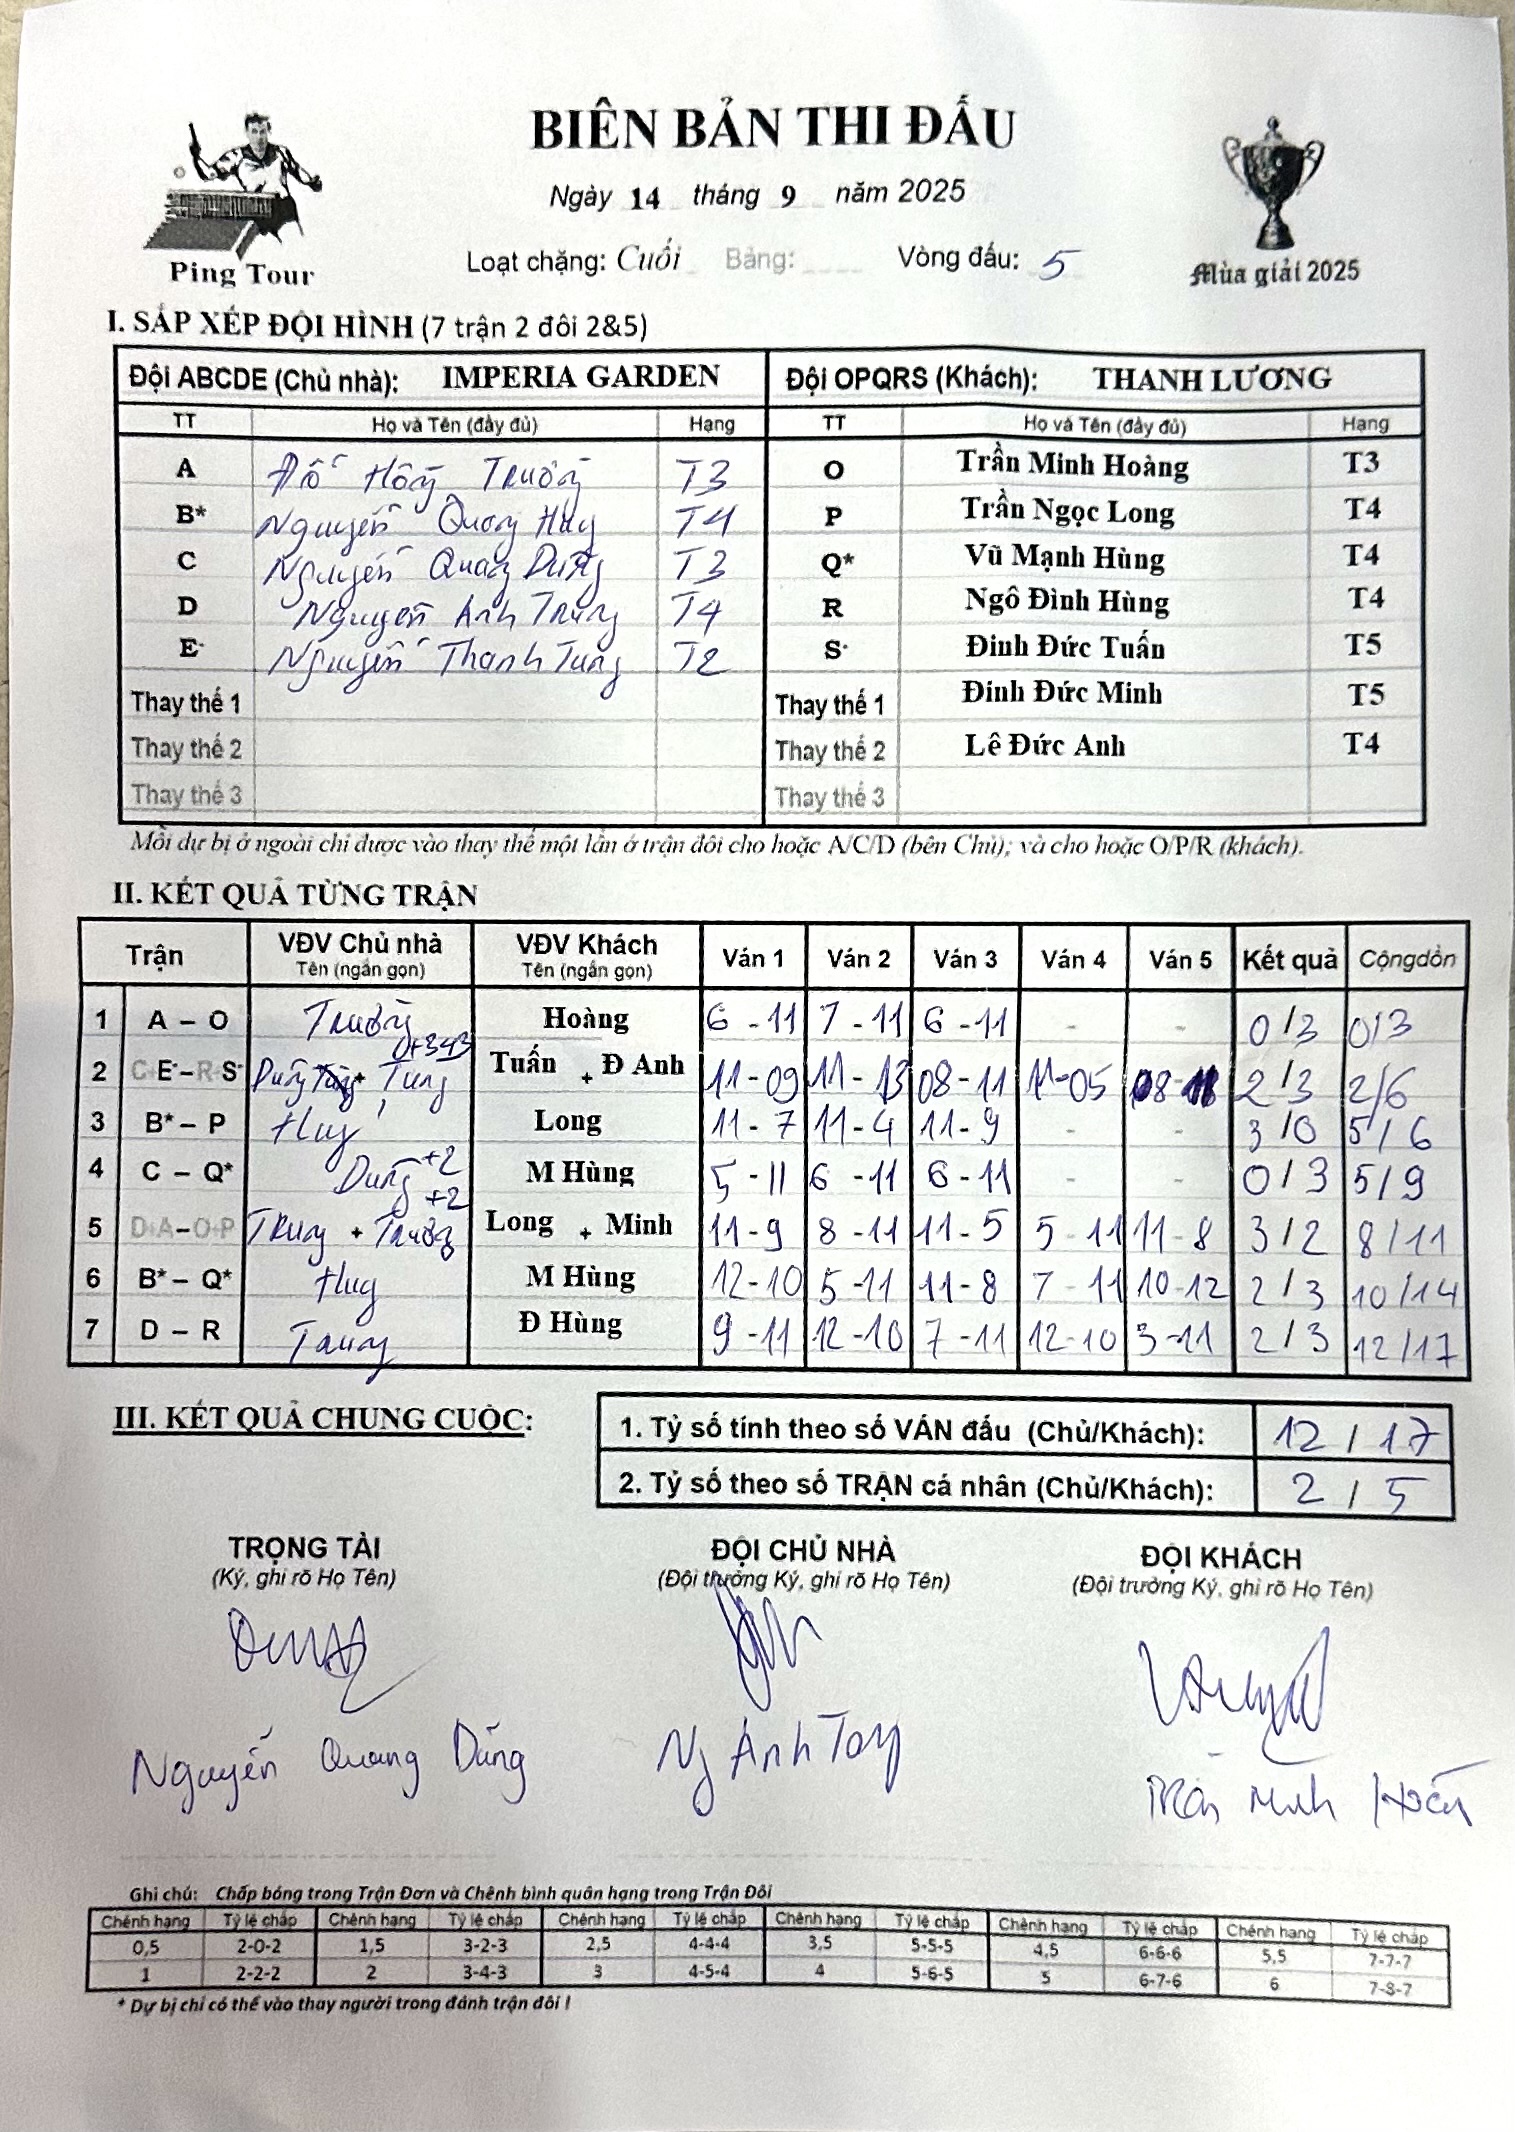 BIÊN BẢN THI ĐẤU
Ngày 14 tháng 9 năm 2025
Loạt chặng: Cuối Bảng: Vòng đấu: 5
Ping Tour
Mùa giải 2025
I. SẮP XẾP ĐỘI HÌNH (7 trận 2 đôi 2&5)
Đội ABCDE (Chủ nhà): IMPERIA GARDEN Đội OPQRS (Khách): THANH LƯƠNG
TT Họ và Tên (đầy đủ) Hạng TT Họ và Tên (đầy đủ) Hạng
A Đỗ Hồng Trường T3 O Trần Minh Hoàng T3
B* Nguyễn Quang Huy T4 P Trần Ngọc Long T4
C Nguyễn Quang Dũng T3 Q* Vũ Mạnh Hùng T4
D Nguyễn Anh Trung T4 R Ngô Đình Hùng T4
E- Nguyễn Thanh Tùng T2 S- Đinh Đức Tuấn T5
Thay thế 1 Thay thế 1 Đinh Đức Minh T5
Thay thế 2 Thay thế 2 Lê Đức Anh T4
Thay thế 3 Thay thế 3
Mỗi dự bị ở ngoài chỉ được vào thay thế một lần ở trận đôi cho hoặc A/C/D (bên Chủ); và cho hoặc O/P/R (khách).
II. KẾT QUẢ TỪNG TRẬN
Trận VĐV Chủ nhà VĐV Khách Ván 1 Ván 2 Ván 3 Ván 4 Ván 5 Kết quả Cộngdồn
Tên (ngắn gọn) Tên (ngắn gọn)
1 A – O Trường Hoàng 6 - 11 7 - 11 6 - 11 - - 0/3 0/3
2 C+E-–R+S- Dũng + Tùng Tuấn + Đ Anh 11-09 11-13 08-11 11-05 08-11 2/3 2/6
3 B* – P Huy Long 11-7 11-4 11-9 - - 3/0 5/6
4 C – Q* Dũng +2 M Hùng 5-11 6-11 6-11 - - 0/3 5/9
+2
5 D+A–O+P Trung + Trường Long + Minh 11-9 8-11 11-5 5-11 11-8 3/2 8/11
6 B* – Q* Huy M Hùng 12-10 5-11 11-8 7-11 10-12 2/3 10/14
7 D – R Trung Đ Hùng 9-11 12-10 7-11 12-10 3-11 2/3 12/17
III. KẾT QUẢ CHUNG CUỘC:
1. Tỷ số tính theo số VÁN đấu (Chủ/Khách): 12 / 17
2. Tỷ số theo số TRẬN cá nhân (Chủ/Khách): 2 / 5
TRỌNG TÀI ĐỘI CHỦ NHÀ ĐỘI KHÁCH
(Ký, ghi rõ Họ Tên) (Đội trưởng Ký, ghi rõ Họ Tên) (Đội trưởng Ký, ghi rõ Họ Tên)
Nguyễn Quang Dũng Ng Anh Trần Minh Hoàng
Ghi chú: Chấp bóng trong Trận Đơn và Chênh bình quân hạng trong Trận Đôi
Chênh hạng Tỷ lệ chấp Chênh hạng Tỷ lệ chấp Chênh hạng Tỷ lệ chấp Chênh hạng Tỷ lệ chấp Chênh hạng Tỷ lệ chấp Chênh hạng Tỷ lệ chấp
0,5 2-0-2 1,5 3-2-3 2,5 4-4-4 3,5 5-5-5 4,5 6-6-6 5,5 7-7-7
1 2-2-2 2 3-4-3 3 4-5-4 4 5-6-5 5 6-7-6 6 7-8-7
* Dự bị chỉ có thể vào thay người trong đánh trận đôi !